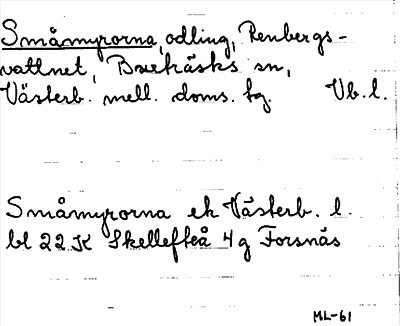 Småmyrorna, odling, Renbergs-
vattnet, Burträsks sn,
Västerb. mell. doms. tg. Vb. l.
Småmyrorna ek Västerb. l.
bl 22 K Skellefteå 4 g Forsnäs
ML-61